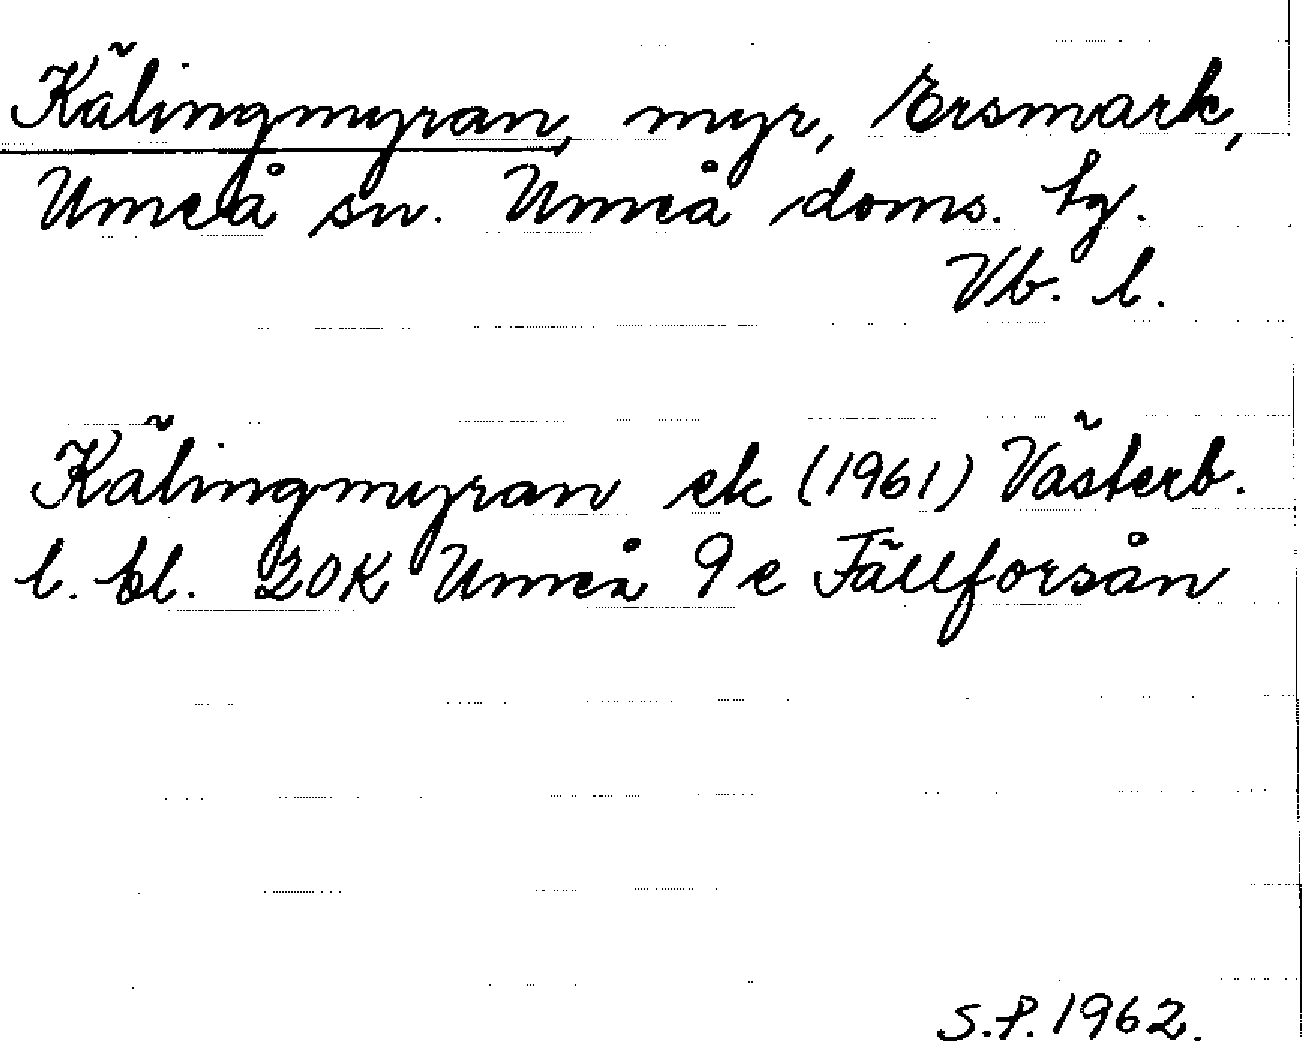 Kälingmyran, myr, Ersmark,
Umeå sn. Umeå doms. tg.
Vb. l.
Kälingmyran ek (1961) Västerb.
l. bl. 20K Umeå 9e Fällforsån
S.P. 1962.